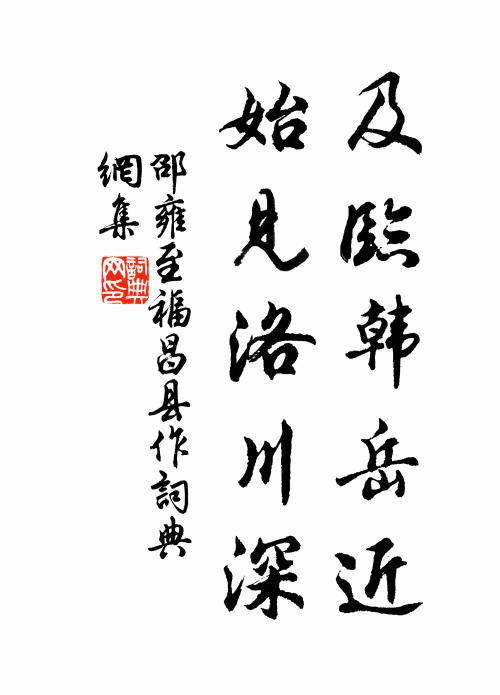 及臨韩岳近
始見洛川深
邵雍至福昌县作詞典
網集
詞典網印